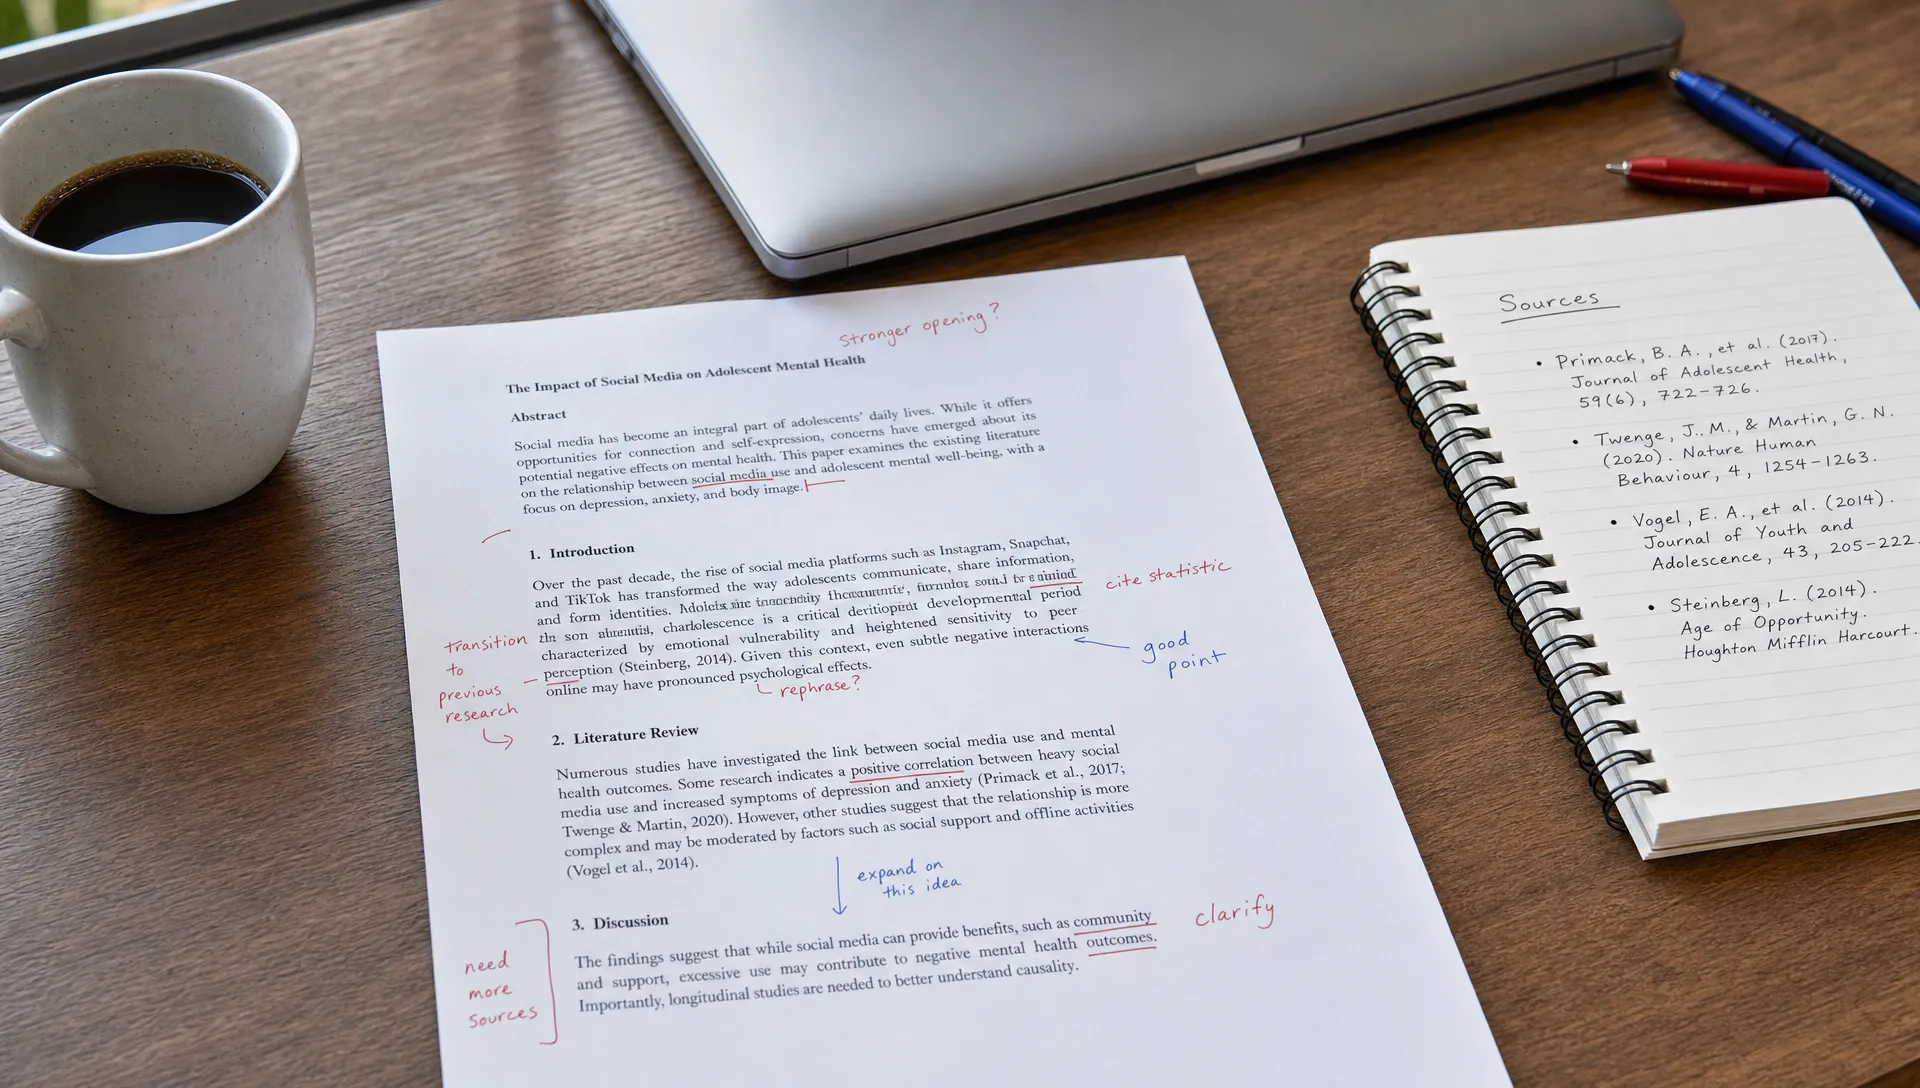 Stronger opening?
The Impact of Social Media on Adolescent Mental Health
Abstract
Social media has become an integral part of adolescents' daily lives. While it offers
opportunities for connection and self-expression, concerns have emerged about its
potential negative effects on mental health. This paper examines the existing literature
on the relationship between social media use and adolescent mental well-being, with a
focus on depression, anxiety, and body image.
1. Introduction
Over the past decade, the rise of social media platforms such as Instagram, Snapchat,
and TikTok has transformed the way adolescents communicate, share information,
and form identities.
is a critical developmental period
characterized by emotional vulnerability and heightened sensitivity to peer
perception (Steinberg, 2014). Given this context, even subtle negative interactions
online may have pronounced psychological effects.
cite statistic
good
point
transition
to
previous
research
rephrase?
2. Literature Review
Numerous studies have investigated the link between social media use and mental
health outcomes. Some research indicates a positive correlation between heavy social
media use and increased symptoms of depression and anxiety (Primack et al., 2017;
Twenge & Martin, 2020). However, other studies suggest that the relationship is more
complex and may be moderated by factors such as social support and offline activities
(Vogel et al., 2014).
expand on
this idea
3. Discussion
The findings suggest that while social media can provide benefits, such as community
and support, excessive use may contribute to negative mental health outcomes.
Importantly, longitudinal studies are needed to better understand causality.
clarify
need
more
sources
Sources
• Primack, B. A., et al. (2017).
Journal of Adolescent Health,
59(6), 722-726.
• Twenge, J. M., & Martin, G. N.
(2020). Nature Human
Behaviour, 4, 1254-1263.
• Vogel, E. A., et al. (2014).
Journal of Youth and
Adolescence, 43, 205-222.
• Steinberg, L. (2014).
Age of Opportunity.
Houghton Mifflin Harcourt.